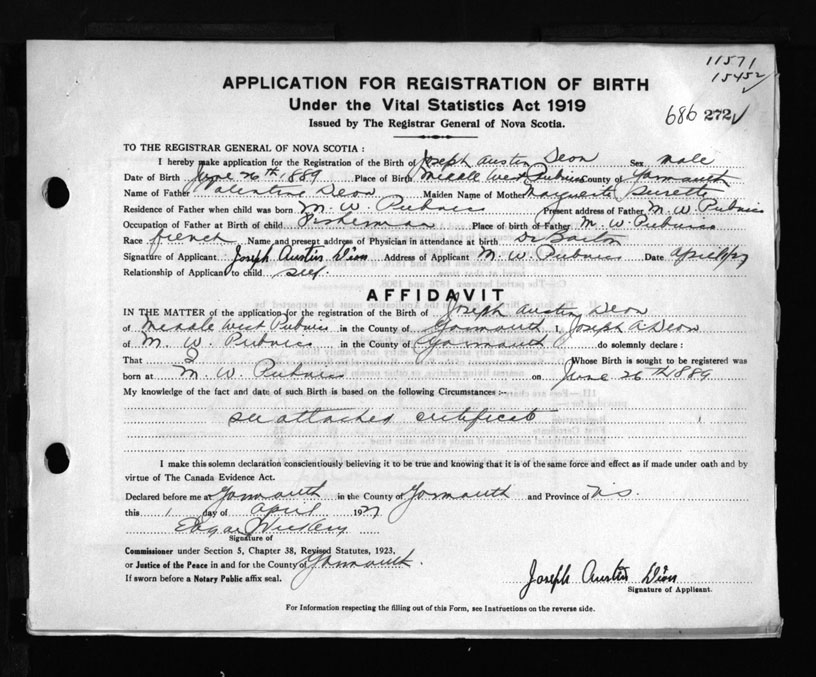 11571
15452
APPLICATION FOR REGISTRATION OF BIRTH
Under the Vital Statistics Act 1919
686 272
Issued by The Registrar General of Nova Scotia.
TO THE REGISTRAR GENERAL OF NOVA SCOTIA :
I hereby make application for the Registration of the Birth of Joseph Austin Deon Sex male
Date of Birth June 26th 1889 Place of Birth Middle West Pubnico County of Yarmouth
Name of Father Valentine Deon Maiden Name of Mother Marguerite
Residence of Father when child was born M. W. Pubnico Present address of Father M. W. Pubnico
Occupation of Father at Birth of child Fisherman Place of birth of Father M. W. Pubnico
Race french Name and present address of Physician in attendance at birth Dr
Signature of Applicant Joseph Austin Dion Address of Applicant M. W. Pubnico Date April 1/27
Relationship of Applicant to child self
AFFIDAVIT
IN THE MATTER of the application for the registration of the Birth of Joseph Austin Deon
of Middle West Pubnico in the County of Yarmouth I, Joseph A Deon
of M. W. Pubnico in the County of Yarmouth do solemnly declare :
That I Whose Birth is sought to be registered was
born at M. W. Pubnico on June 26th 1889
My knowledge of the fact and date of such Birth is based on the following Circumstances :-
see attached certificate
I make this solemn declaration conscientiously believing it to be true and knowing that it is of the same force and effect as if made under oath and by
virtue of The Canada Evidence Act.
Declared before me at Yarmouth in the County of Yarmouth and Province of N.S.
this 1 day of April 1927
Edgar
Signature of
Commissioner under Section 5, Chapter 38, Revised Statutes, 1923,
or Justice of the Peace in and for the County of Yarmouth.
If sworn before a Notary Public affix seal.
Joseph Austin Dion
Signature of Applicant.
For Information respecting the filling out of this Form, see Instructions on the reverse side.